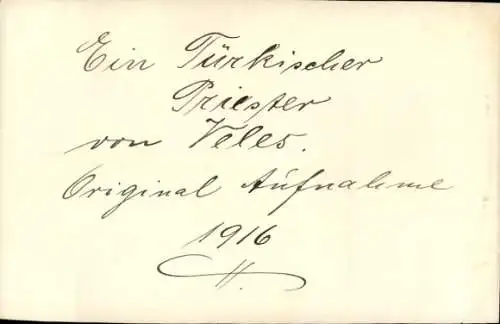 Ein Türkischer
Priester
von Veles.
Original Aufnahme
1916